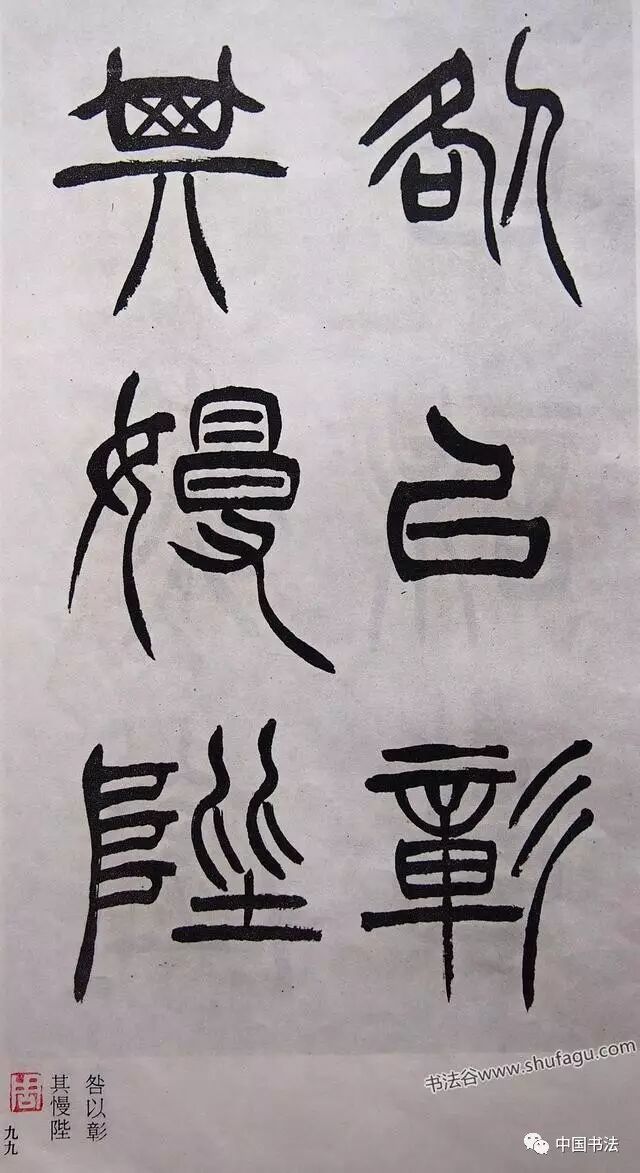 咎以彰
其嫚陛
咎以彰
其慢陛
九九
书法谷www.shufagu.com
中国书法